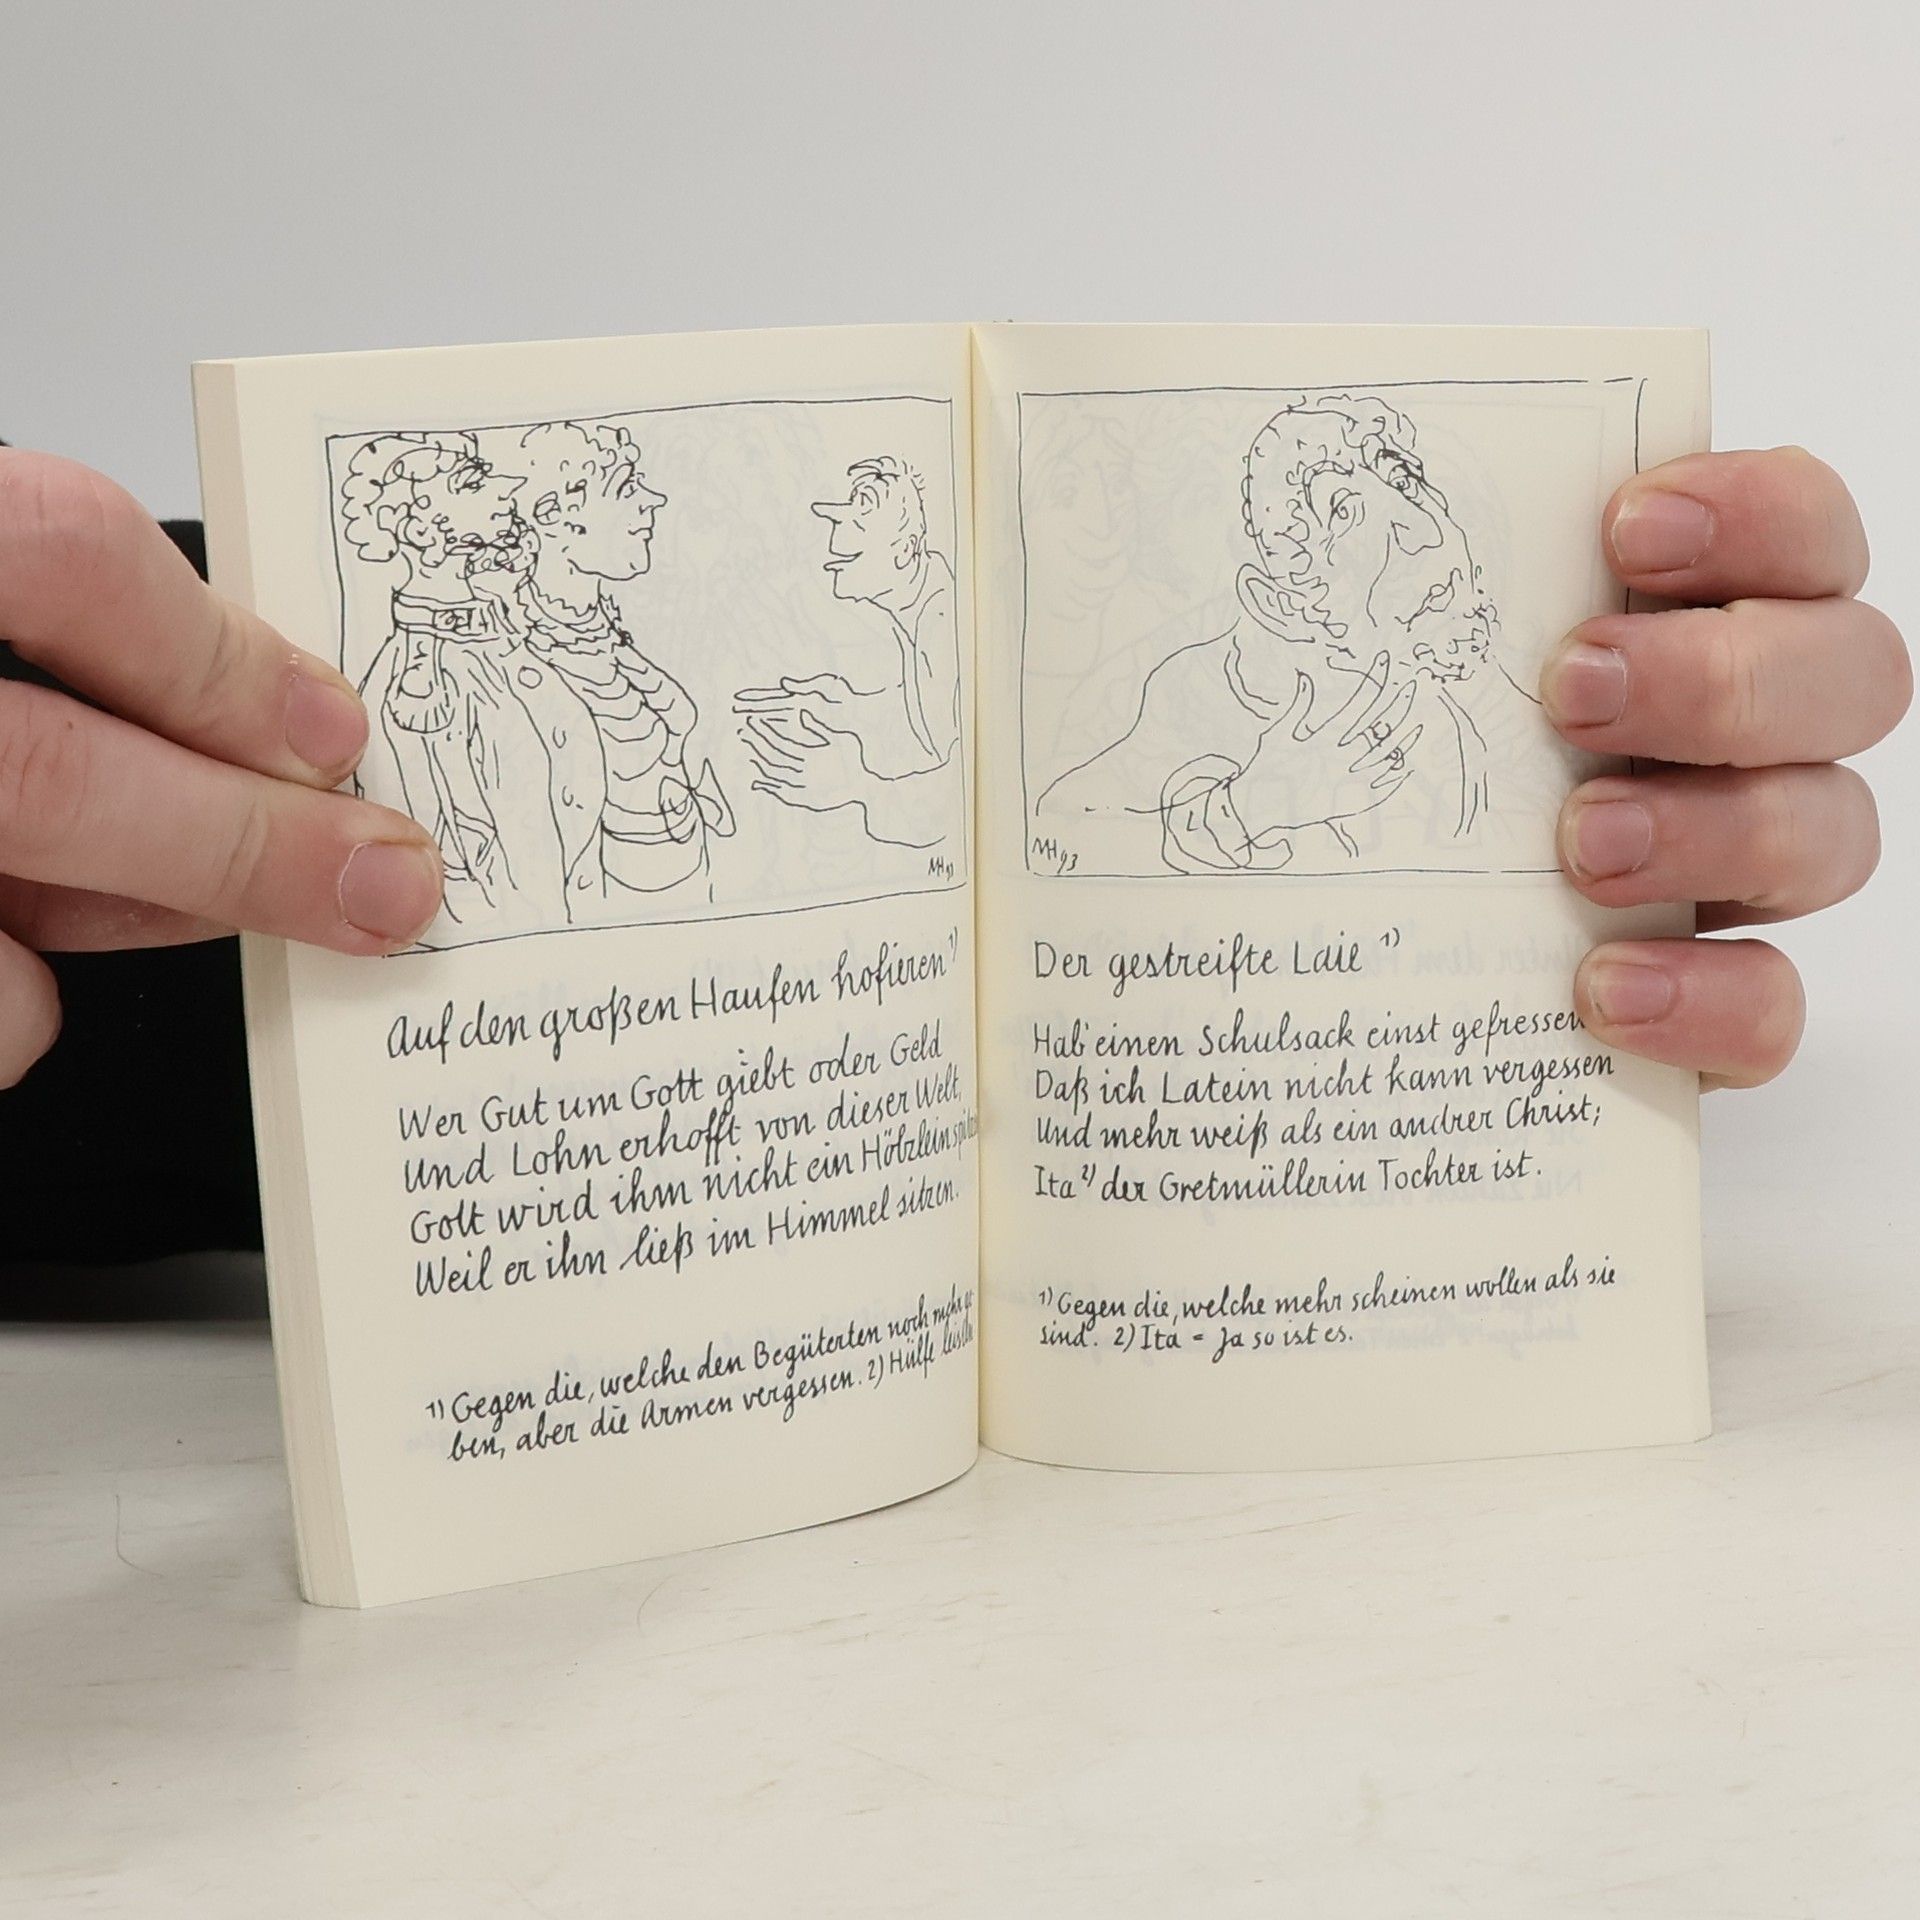 MH 93
Auf den großen Haufen hofieren 1)
Wer Gut um Gott giebt oder Geld
Und Lohn erhofft von dieser Welt,
Gott wird ihm nicht ein Hölzlein
Weil er ihn ließ im Himmel sitzen.
1) Gegen die, welche den Begüterten noch mehr ge
ben, aber die Armen vergessen. 2) Hülfe leisten
MH 93
Der gestreifte Laie 1)
Hab' einen Schulsack einst gefressen
Daß ich Latein nicht kann vergessen
Und mehr weiß als ein andrer Christ;
Ita 2) der Gretmüllerin Tochter ist.
1) Gegen die, welche mehr scheinen wollen als sie
sind. 2) Ita = Ja so ist es.